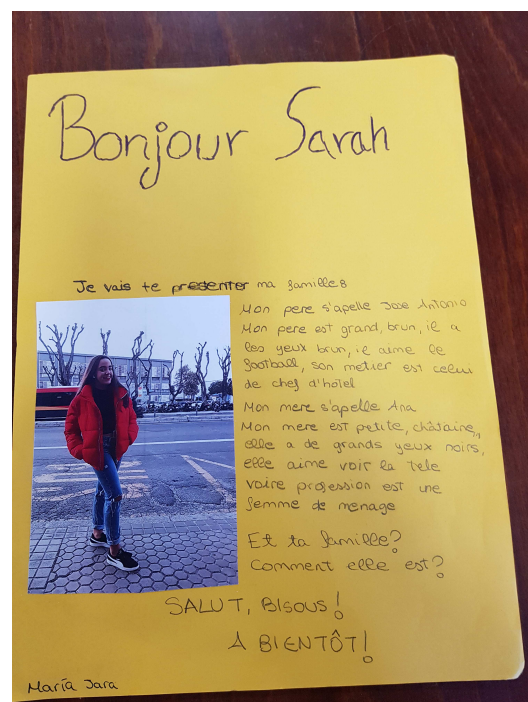 Bonjour Sarah
Je vais te presenter ma familles
Mon pere s'apelle Jose Antonio
Mon pere est grand, brun, il a
les yeux brun, il aime le
football, son metier est celui
de chef d'hôtel
Mon mere s'apelle Ana
Mon mere est petite, châtaine,,
elle a de grands yeux noirs,
elle aime voir la tele
voire profession est une
femme de menage
Et ta famille?
Comment elle est?
SALUT, BISOUS!
A BIENTÔT!
María Jara